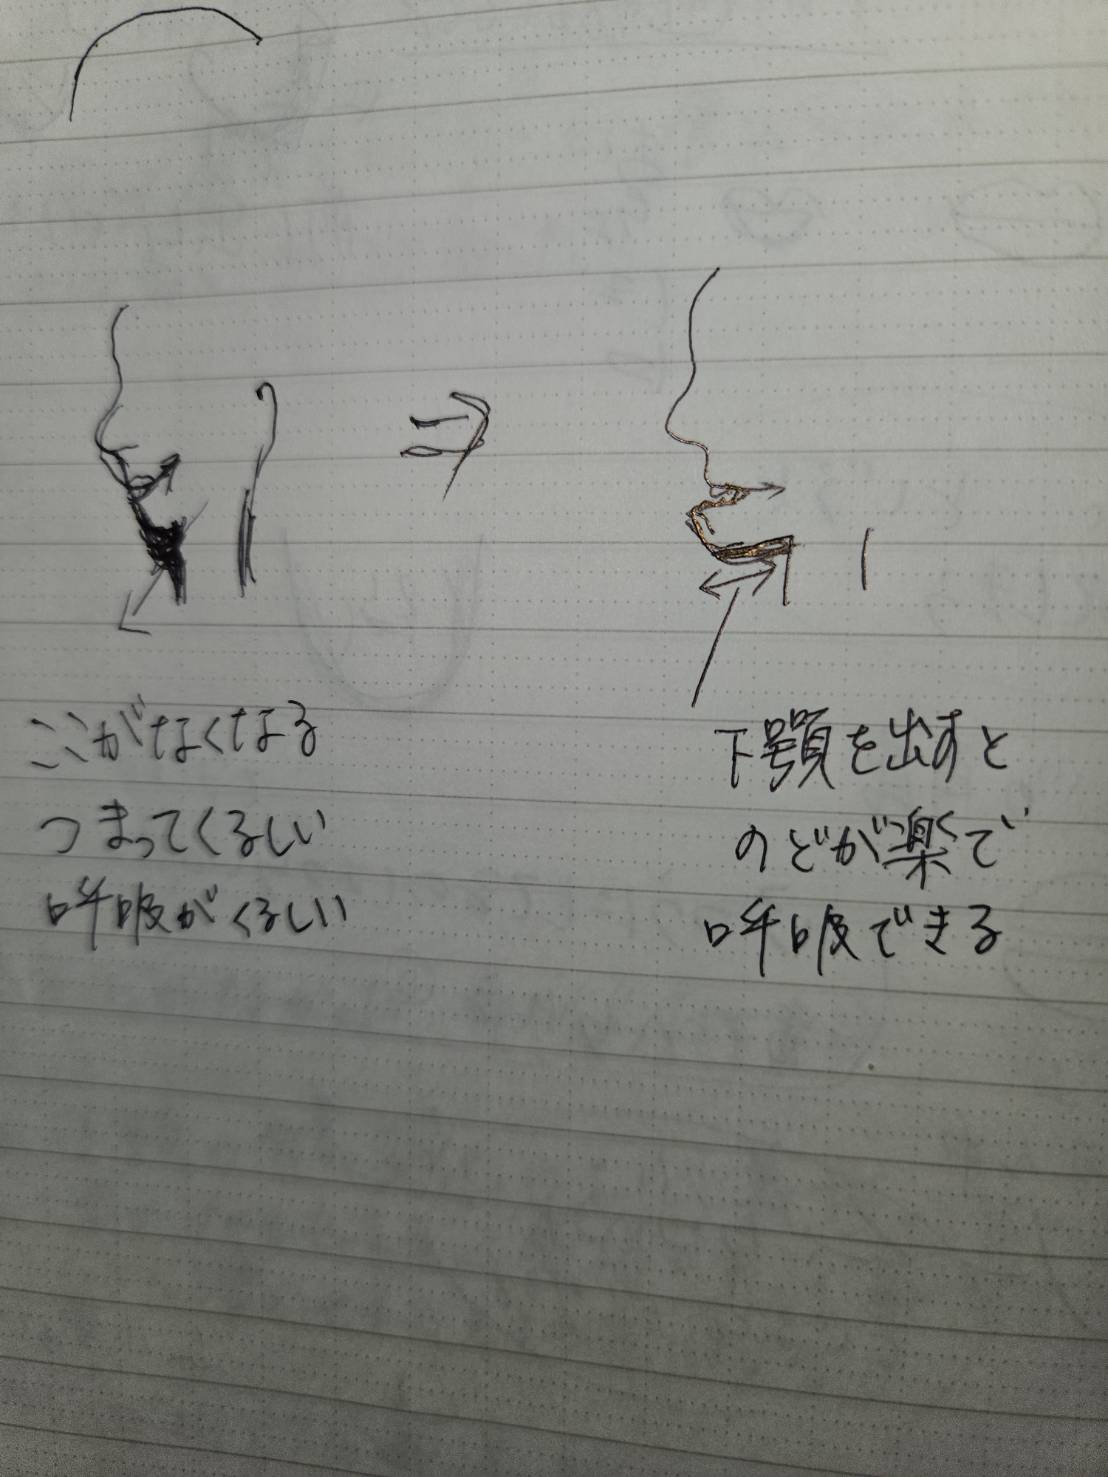 ここがなくなる
つまってくるしい
呼吸がくるしい
下顎を出すと
のどが楽で
呼吸できる